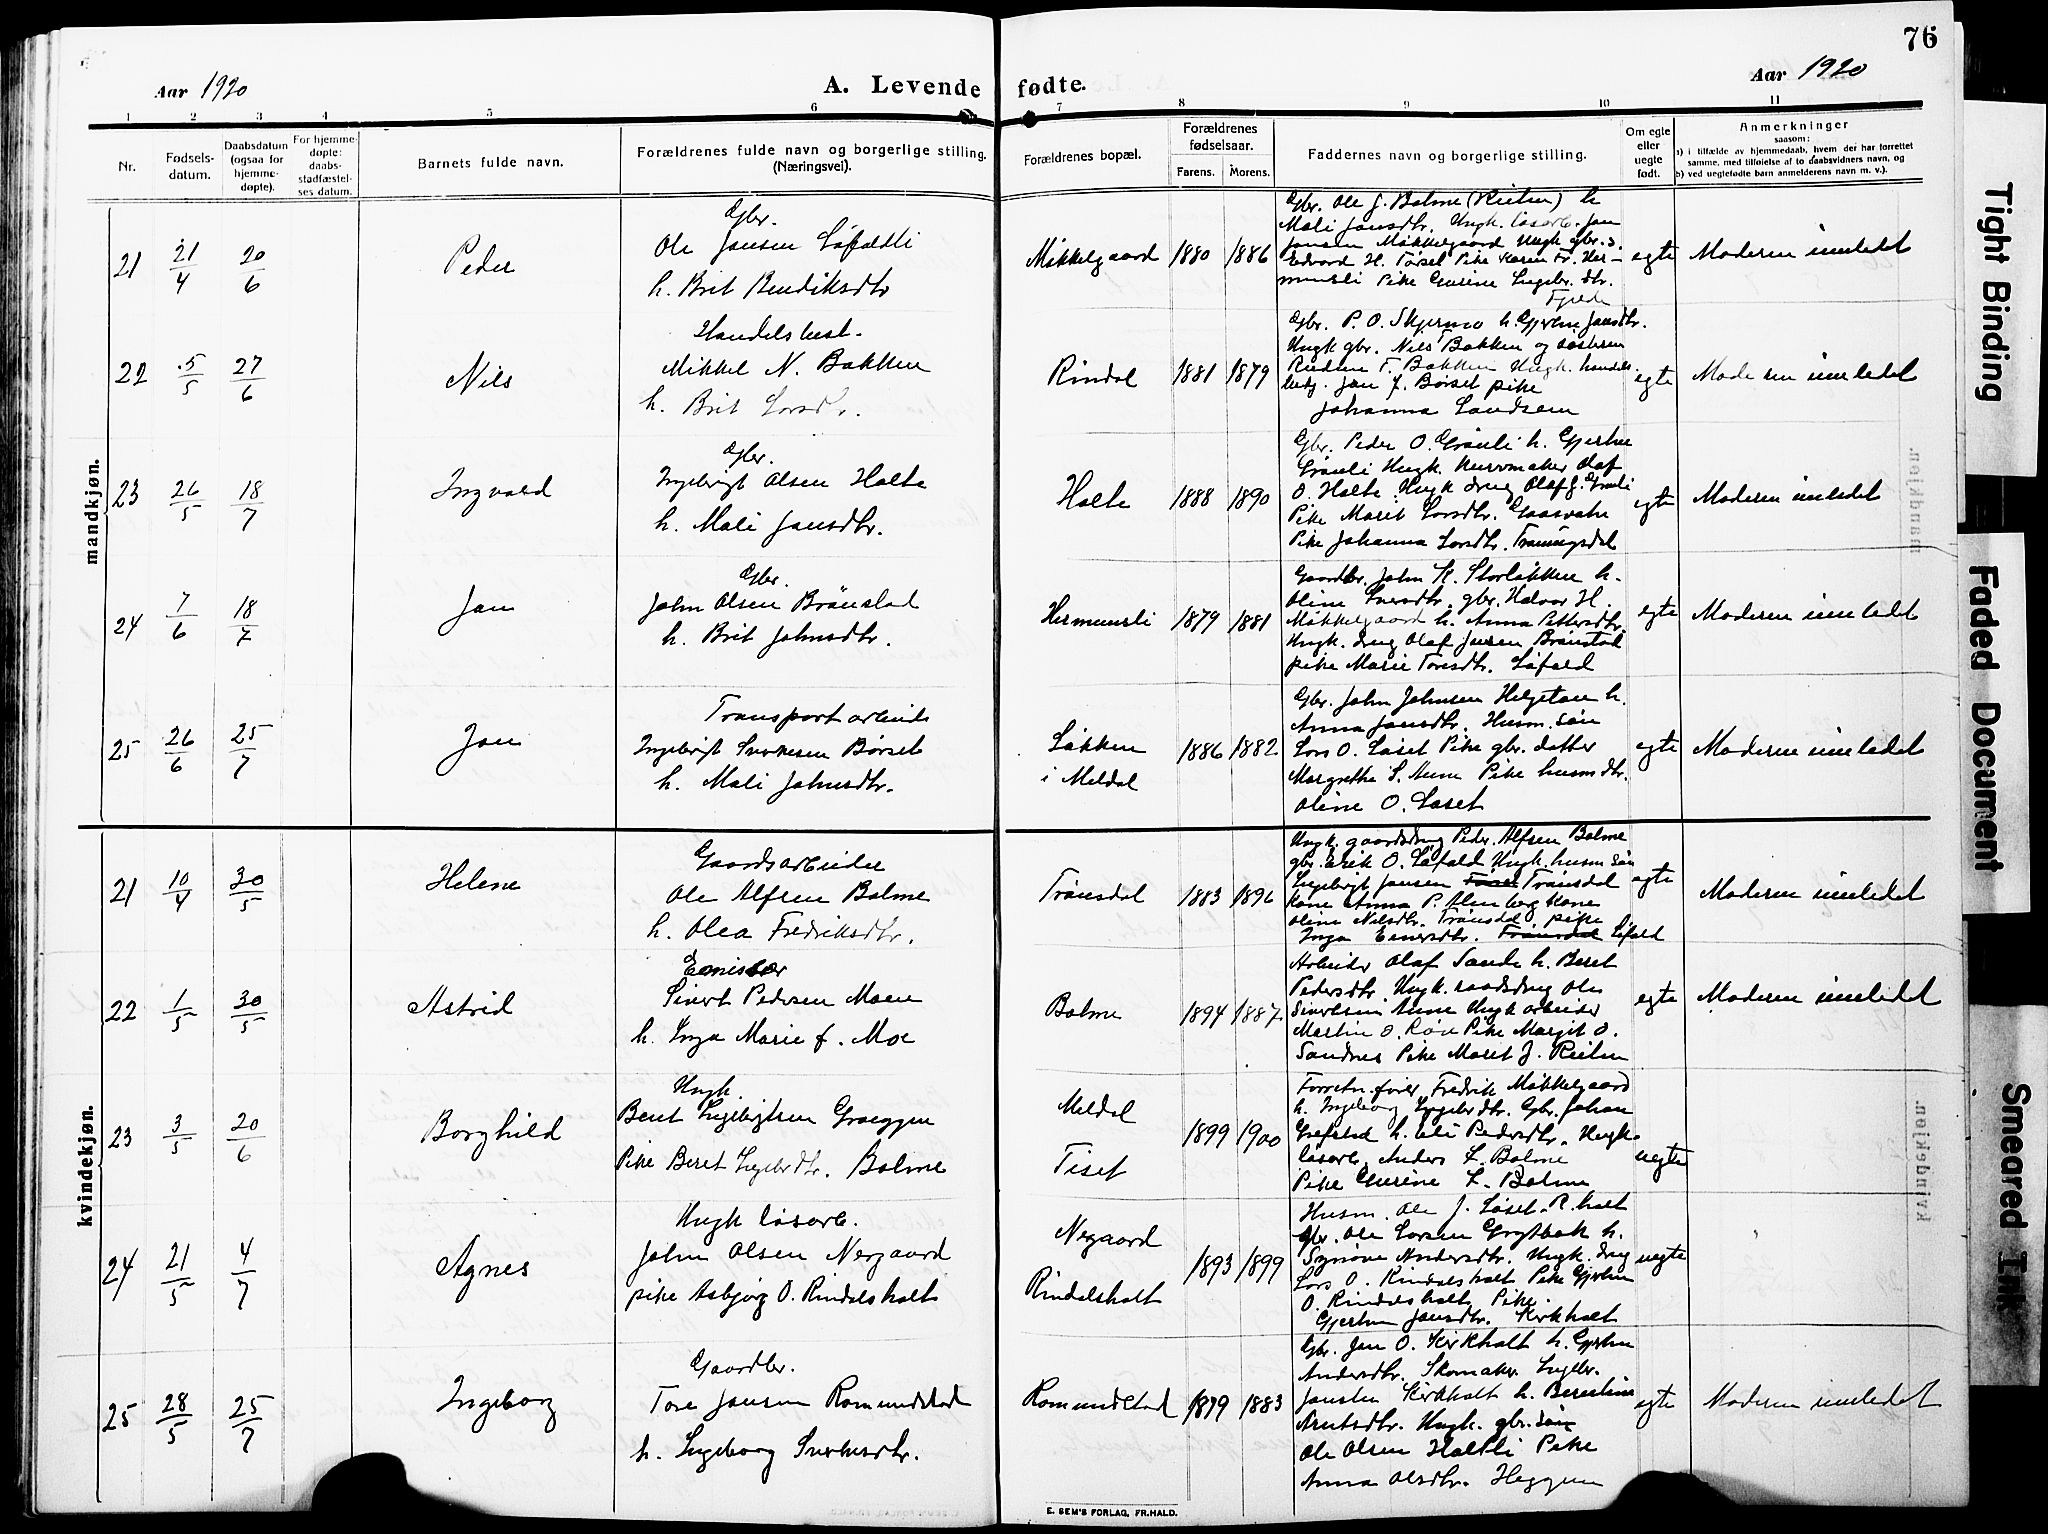 76
Aar 1920
A. Levende fødte.
Aar 1920
1 2 3 4 5 6 7 8 9 10 11
Nr.
Fødsels-
datum.
Daabsdatum
(ogsaa for
hjemme-
døpte).
For hjemme-
døpte:
daabs-
stadfæstel-
ses datum.
Barnets fulde navn.
Forældrenes fulde navn og borgerlige stilling.
(Næringsvei).
Forældrenes bopæl.
Forældrenes
fødselsaar.
Farens. Morens.
Faddernes navn og borgerlige stilling.
Om egte
eller
uegte
født.
Anmerkninger
saasom:
a) i tilfælde av hjemmedaab, hvem der har forrettet
samme, med tilføielse af to daabsvidners navn, og
b) ved uegtefødte barn anmelderens navn m. v.).
mandkjøn.
21 21/4 20/6 Peder
Gbr.
Ole Jansen Løfaldli
h. Brit Bendiksdtr
Møkkelgaard 1880 1886
Gbr. Ole J. Bolme
Mali Jansdtr. Ungk. løsarb. Jan
Jansen Møkkelgaard Ungk. gbr. s.
Edvard H. Tørset Pike Karen Fr. Her-
munsli Pike Gurine Ingebr. dtr.
Fjelde
egte Moderen innledet
22 5/5 27/6 Nils
Handelsbest.
Mikkel N. Bakken
h. Brit Larsdtr.
Rindal 1881 1879
Gbr. P. O. Skjermo h. Gjertin Jansdtr.
Ungk gbr. Nils Bakken og søsteren
F. Bakken Ungk. handels
betj. Jan J. Børset pike
Johanna Landsem
egte Moderen innledet
23 26/5 18/7 Ingvald
Gbr.
Ingebrigt Olsen Holte
h. Mali Jansdtr.
Holte 1888 1890
Gbr. Peder O. Grønli h. Gjertru
Grønli Ungk. kurvmaker Olaf
O. Holte. Ungk dreng Olaf J. Grønli
Pike Marit Larsdtr. Gaasvatn
Pike Johanna Larsdtr. Trønsdal
egte Moderen innledet
24 7/6 18/7 Jan
Gbr.
John Olsen Brønstad
h. Brit Johnsdtr.
Hermunsli 1879 1881
Gaardbr. John K. Storløkken h.
Oline Sversdtr. gbr. Halvor H.
Møkkelgaard h. Anna Pettersdtr.
Ungk. dreng Olaf Jansen Brønstad
pike Marie Toresdtr. Løfald
egte Moderen innledet
25 26/6 25/7 Jan
Transportarbeider
Ingebrigt Sivertsen Børset
h. Mali Johnsdtr.
Løkken
i Meldal
1886 1882
Gbr. John Johnsen Helgetun h.
Anna Jansdtr. Husm. søn
Lars O. Løset Pike gbr. datter
Margrethe S. Aune Pike husm dtr.
Oline O. Løset
egte Moderen innledet
kvindekjøn.
21 10/4 30/5 Helene
Gaardsarbeider
Ole Alfsen Bolme
h. Olea Fredriksdtr.
Trønsdal 1883 1896
Ungk. gaardsdreng Peder Alfsen Bolme
gbr. Erik O. Løfald Ungk. husm søn
Ingebrigt Jansen Trønsdal
Kone Anna P. Almberg Kone
Oline Nilsdtr. Trønsdal pike
Inga Einersdtr. Trønsdal Løfald
egte Moderen innledet
22 1/5 30/5 Astrid
Emissær
Sivert Pedersen Moen
h. Inga Marie f. Moe
Bolme 1894 1887.
Arbeider Olaf Sande h. Beret
Pedersdtr. Ungk. gaardsdreng Ole
Sivertsen Aune Ungk arbeider
Martin O. Røen Pike Margit O.
Sandnes Pike Marit J.
egte Moderen innledet
23 3/5 20/6 Borghild
Ungk.
Bernt Ingebrigtsen Graeggen
Pike Beret Ingebrdtr. Bolme
Meldal
Tiset
1899 1900
Forretn.fører Fredrik Møkkelgaard
h. Ingeborg Ingebrdtr. Gbr. Johan
Grefstad h. Eli Pedersdtr. Ungk.
løsarb. Anders I. Bolme
Pike Gurine I. Bolme
uegte
24 21/5 4/7 Agnes
Ungk løsarb.
John Olsen Nergaard
pike Asbjørg O. Rindalsholt
Negaard
Rindalsholt
1893 1899
Husm. Ole J. Løset R.holt
gbr. Ole Larsen Grytbak h.
Synøve Andersdtr. Ungk. dreng
Lars O. Rindalsholt Pike Gjertru
O. Rindalsholt Pike
Gjertru Jansdtr. Kirkholt
uegte
25 28/5 25/7 Ingeborg
Gaardbr.
Tore Jansen Romundstad
h. Ingeborg Sivertsdtr.
Romundstad 1879 1883
Gbr. Jan O. Kirkholt h. Gjertru
Andersdtr. Skomaker Ingebr.
Jansen Kirkholt h. Berntine
Arntsdtr. Ungk. gbr. søn
Ole Olsen Holtli Pike
Anna Olsdtr. Heggem
egte Moderen innledet
E. SEM'S FORLAG, FR.HALD.
Tight Binding
Faded Document
Smeared Ink